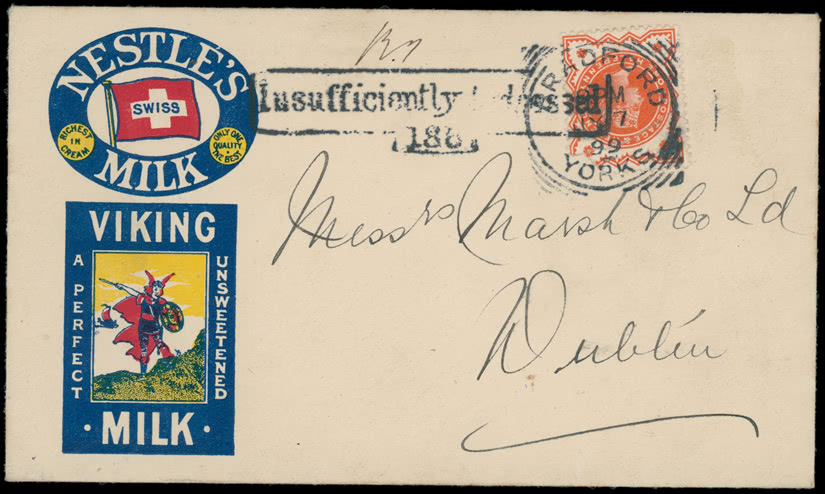 NESTLÉ'S
SWISS
RICHEST
IN
CREAM
ONLY ONE
QUALITY
THE BEST
MILK
VIKING
A PERFECT
UNSWEETENED
· MILK ·
Insufficiently
186
BRADFORD
99
YORKS
POSTAGE &
Messrs Marsh & Co Ld
Dublin